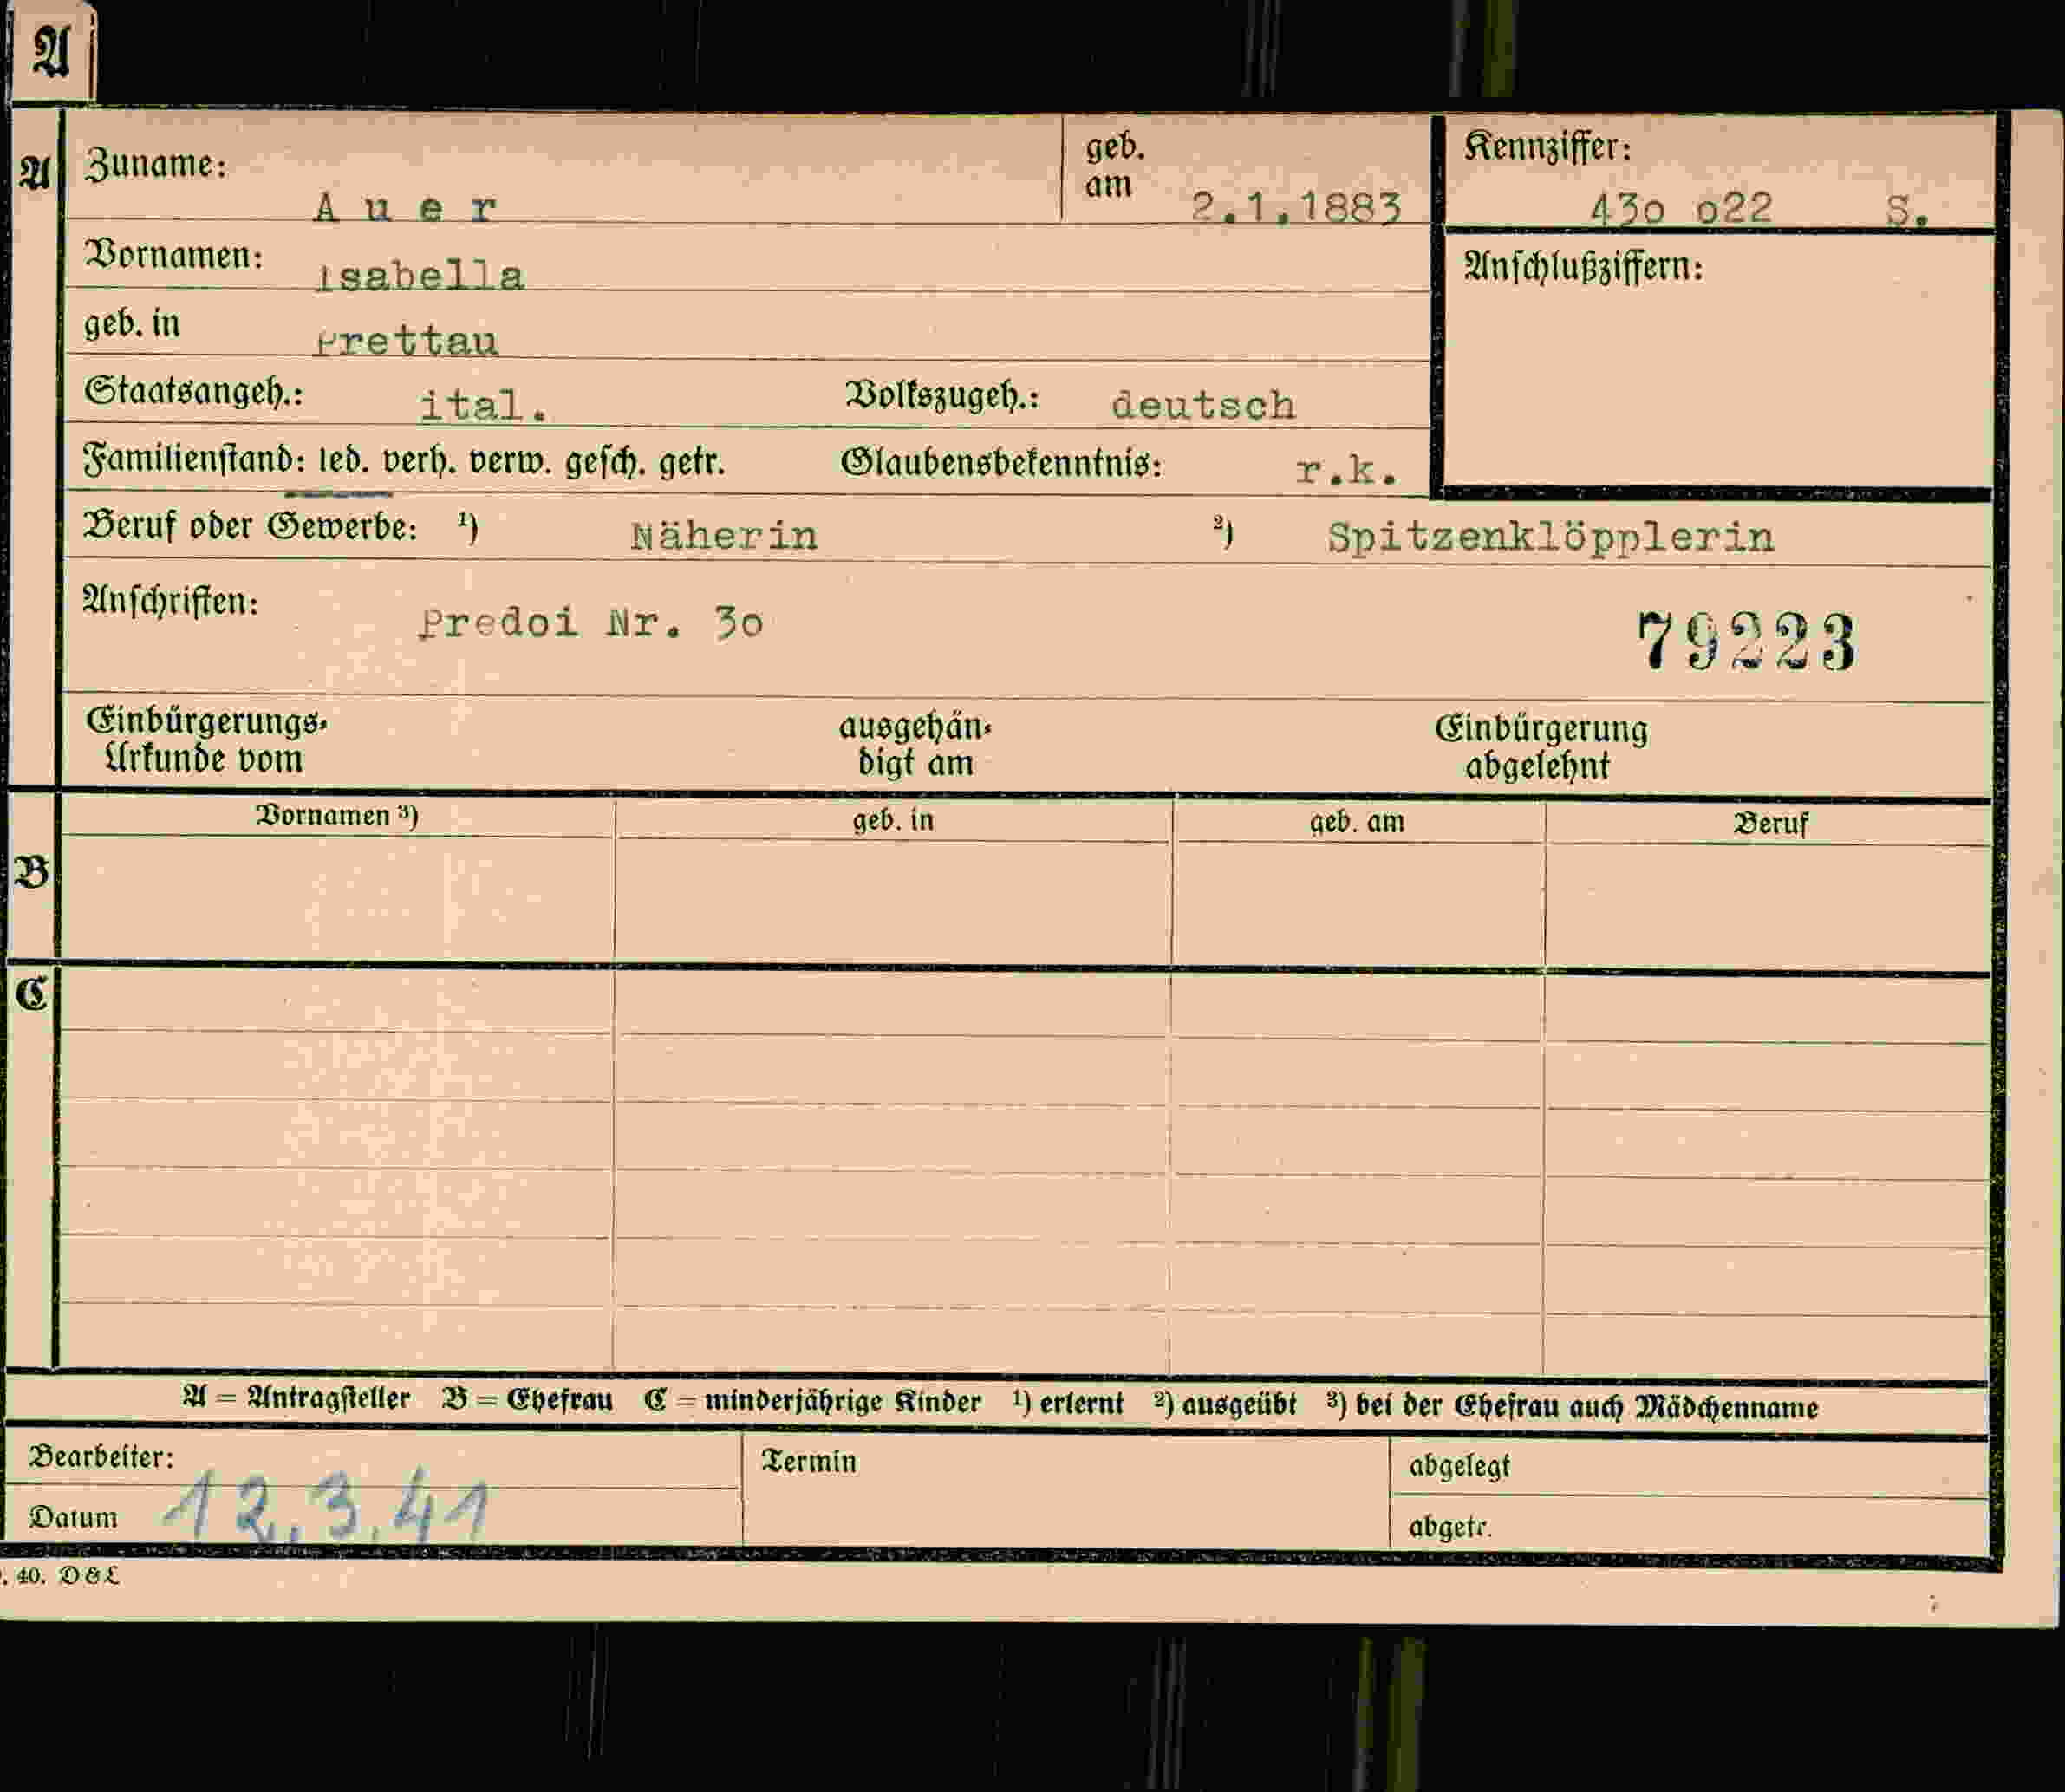 A
A Zuname: A u e r geb. am 2.1.1883 Kennziffer: 43o o22 S.
Vornamen: Isabella Anschlußziffern:
geb. in Prettau
Staatsangeh.: ital. Volkszugeh.: deutsch
Familienstand: led. verh. verw. gesch. getr. Glaubensbekenntnis: r.k.
Beruf oder Gewerbe: ¹) Näherin ²) Spitzenklöpplerin
Anschriften: Predoi Nr. 3o 79223
Einbürgerungs-Urkunde vom ausgehändigt am Einbürgerung abgelehnt
Vornamen ³) geb. in geb. am Beruf
B
C
A = Antragsteller B = Ehefrau C = minderjährige Kinder ¹) erlernt ²) ausgeübt ³) bei der Ehefrau auch Mädchenname
Bearbeiter: Termin abgelegt
Datum 12.3.41 abgetr.
. 40. D & L